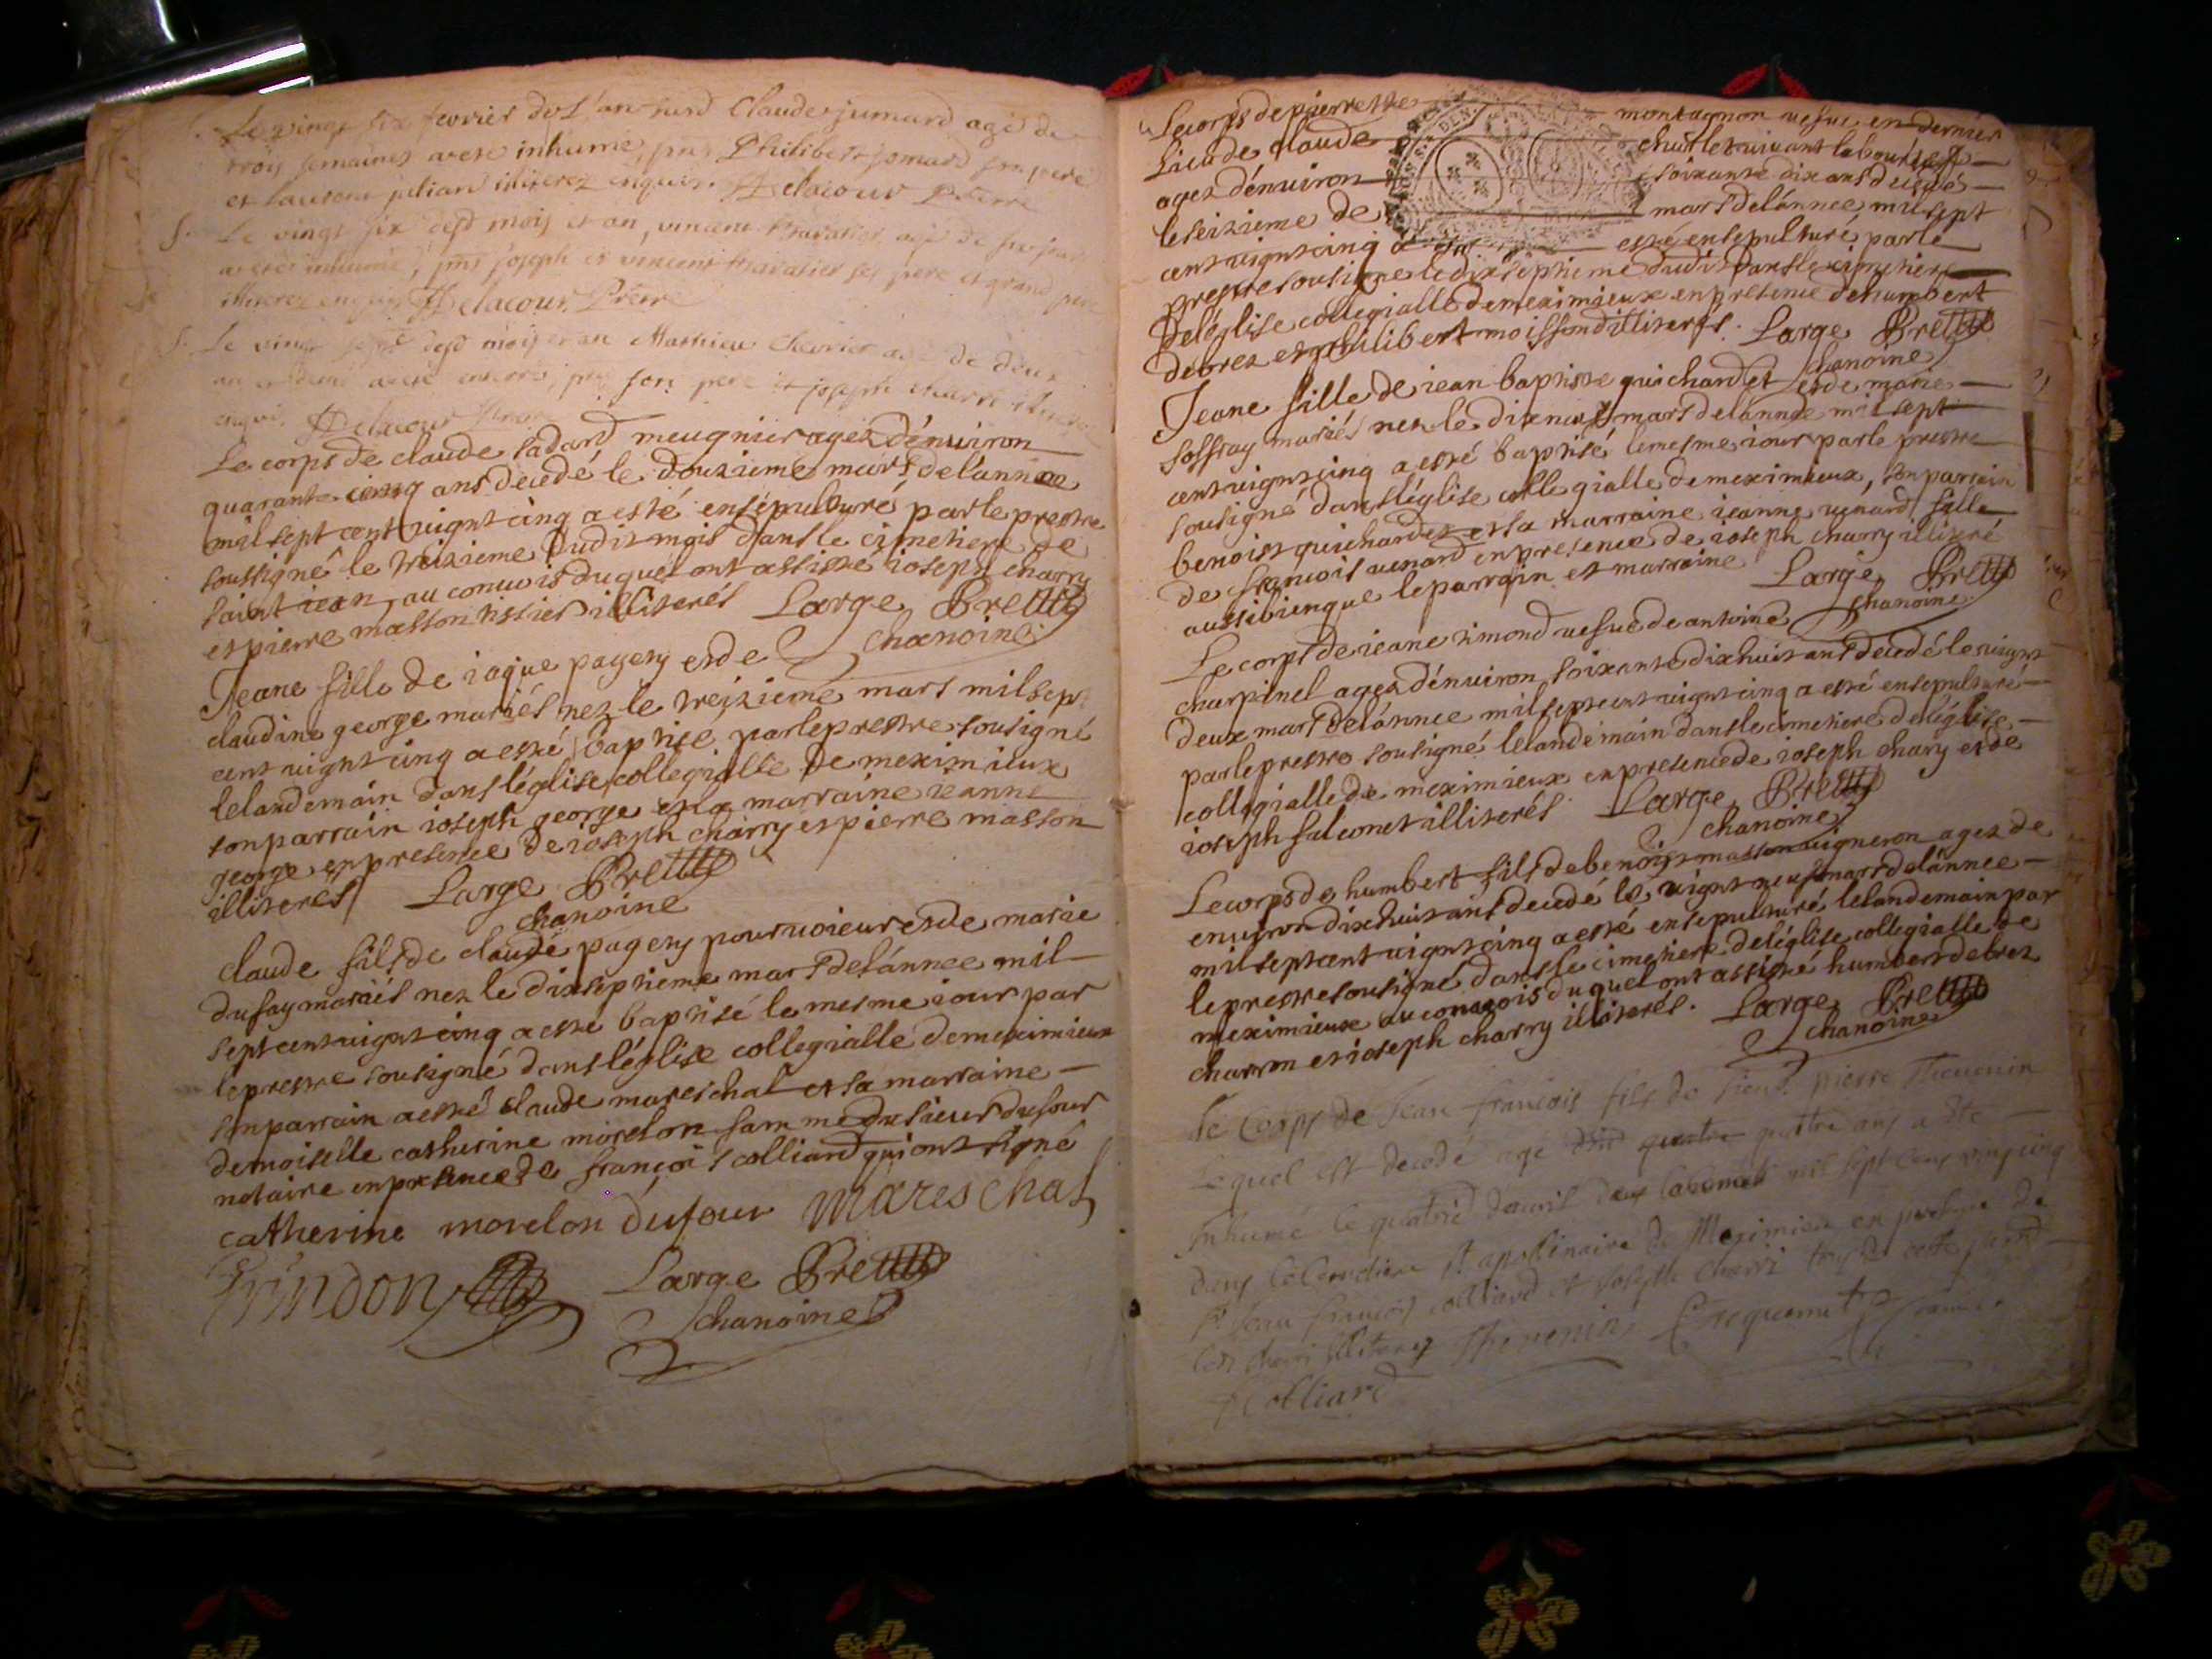 Le vingt six fevrier de l'an susd Claude jumard agé de
trois semaines a ete inhumé, pns Philibert jomard son pere
et laurent julian illiterez enquis. Delacour Prêtre
Le vingt six desd mois et an, vincent travatier agé de six jours
a eté inhumé, pns joseph et vincent travatier ses pere et grand pere
illiterez enquis Delacour Prêtre
Le vingt sept desd mois et an Mathieu chevrier agé de deux
an et demi a ete enterré, pns son pere et joseph
enquis. Delacour Prêtre
Le corps de claude sadard meugnier agez dénuiron
quarante cinq ans decedé le douzieme mars de lánnee
mil sept cent uignt cinq a esté ensépulturé par le prestre
soussigné le treizieme dudit mois dans le cimetiere de
saint iean, au conuois duquel ont assisté ioseph charry
et pierre masson tissier illiterés Large Brettt
chanoine
Jeane fille de iaque pagery et de
claudine george mariés nez le treizieme mars mil sept
cent uignt cinq a esté baptisé par le prestre sousigné
le landemain dans léglise collegialle de meximieux
son parrain ioseph george et la marraine ieanne
george en presence de ioseph charry et pierre masson
illiterés Large Brettt
chanoine
claude fils de claude pagery pouruoieur et de marie
dufay mariés nez le dixseptieme mars de lánnee mil
sept cent uignt cinq a esté baptisé le mesme iour par
le prestre sousigné dans léglise collegialle de meximieux
son parrain a esté claude mareschal et sa marraine
demoiselle catherine morelon famme du sieur dufour
notaire en presence de françois colliard qui ont signé
catherine morelon dufour mareschal
Large Brettt
chanoine
Le corps de pierrette montagnon uefue en dernier
lieu de claude chatlet uiuant laboureur
agez dénuiron soixante dix ans decedés
le seizieme de mars de lánnee mil sept
cent uignt cinq a esté ensepulturé par le
prestre sousigné le dixseptieme dudit dans le cimetiere
de léglise collegialle de meximieux en presence de humbert
debrez et philibert moisson illiterés. Large Brettt
chanoine
Jeane fille de iean baptiste guichardet et de marie
soffray mariés nez le dixneuf mars de lánnee mil sept
cent uignt cinq a esté baptisé le mesme iour par le prestre
sousigné dans léglise collegialle de meximieux, son parrain
benoist guichardet et sa marraine ieanne uenard fille
de francois uenard en presence de ioseph charry illiteré
aussi bien que le parrain et marraine Large Brettt
chanoine
Le corps de ieane rimond uefue de antoine
charpinel agez dénuiron soixante dixhuit ans decedé le uignt
deux mars de lánnee mil sept cent uignt cinq a esté ensepulturé
par le prestre sousigné le landemain dans le cimetiere de léglise
collegialle de meximieux en presence de ioseph chary et de
ioseph falconet illiterés Large Brettt
chanoine
Le corps de humbert fils de benoist masson uigneron agez de
enuiron dixhuit ans decedé le uignt neuf mars de lánnee
mil sept cent uignt cinq a esté ensepulturé le landemain par
le prestre sousigné dans le cimetiere de léglise collegialle de
meximieux au conuois duquel ont assisté humbert debrez
charron et ioseph charry illiterés. Large Brettt
chanoine
le Corps de Jean francois fils de sieur pierre Thevenin
Lequel est decedé agé quatre ans a été
inhumé le quatrie d'avril mil sept cens vingt cinq
dans le Cemetiere St apollinaire de Meximieu en presence de
Sr Jean francois colliard et Joseph charri
led charri illiterez Thevenin
Colliard